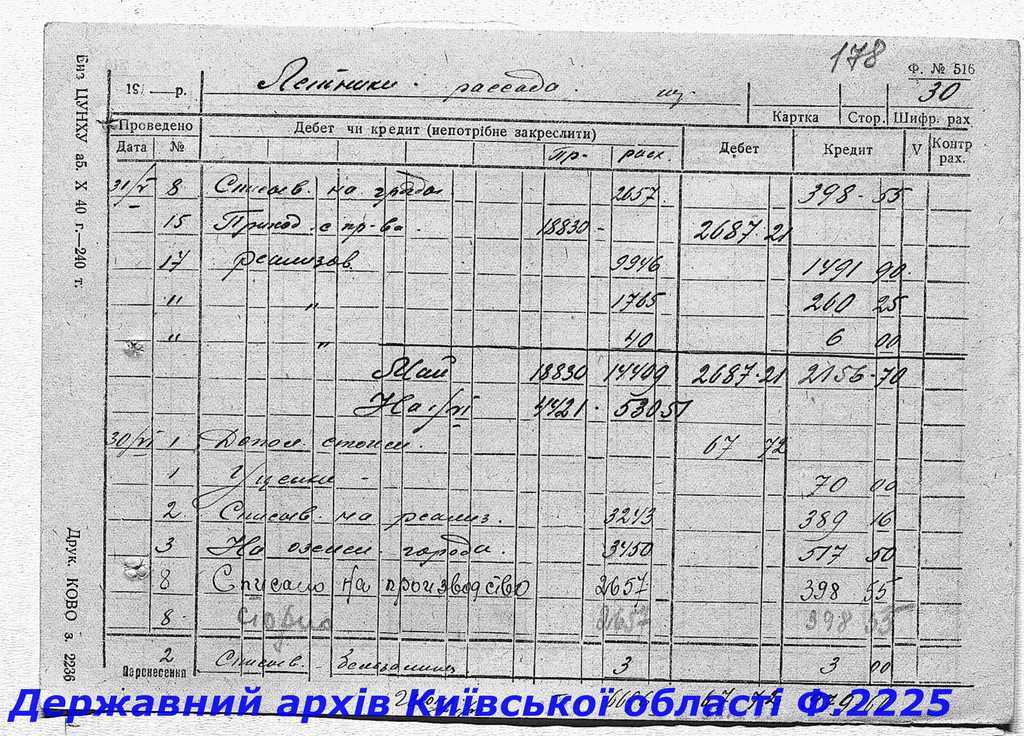 178
Ф. № 516
30
194 — р. Летники рассада шт
Картка Стор. Шифр. рах
Проведено Дебет чи кредит (непотрібне закреслити) Дебет Кредит V Контр рах.
Дата № Пр- расх.
31/V 8 Списыв. на 2657 398-55
15 Приход с пр-ва 18830- 2687-21
17 реализов. 9946 1491 90
" " 1765 260 25
" " 40 6 00
Май 18830 14409 2687-21 2156-70
На 1/VI 4421- 530 51
30/VI 1 Допол. стоим. 67 72
1 Уценка - 70 00
2 Списыв. на реализ. 3243 389 16
3 На озелен. города. 3450 517 50
8 Списано на производство 2657 398 55
8 Сторно 2657 398 55
2 Списыв. 3 3 00
Перенесення
67 72
Биз ЦУНХУ аб. X 40 г.—240 т.
Друк. КОВО з. 2236
Державний архів Київської області Ф.2225